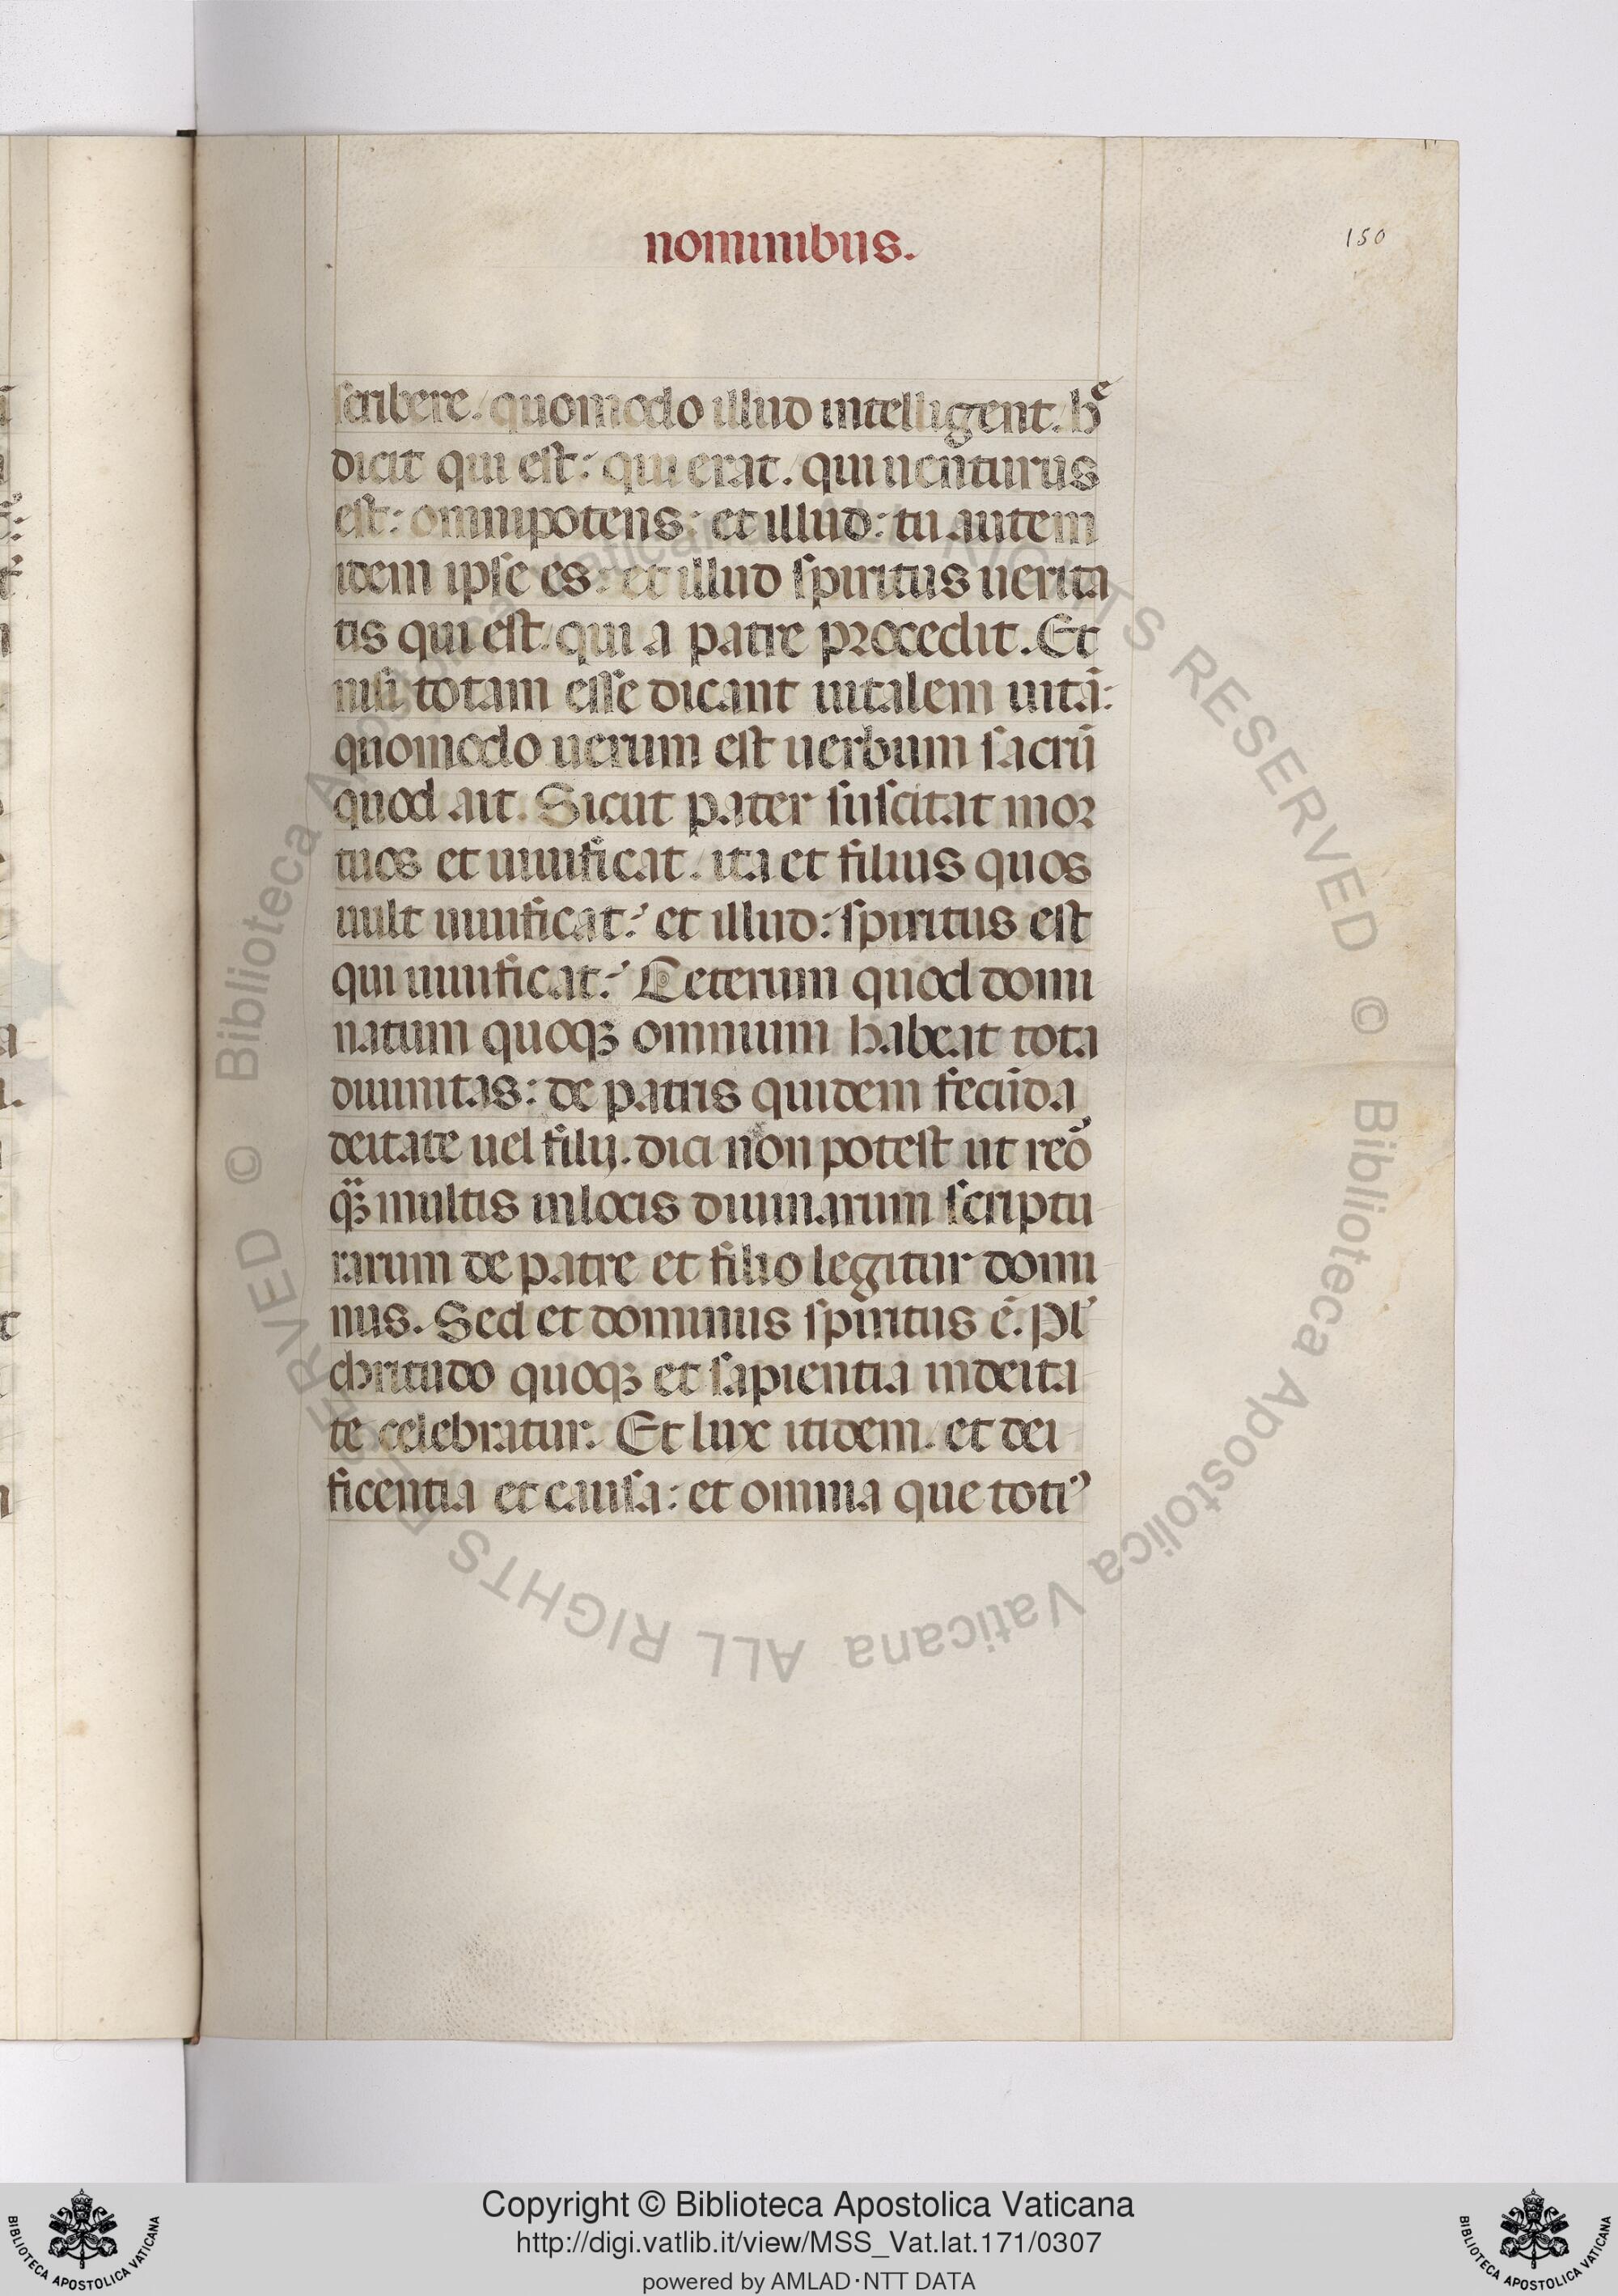 nominibus.
150
scribere. quomodo illud intelligent. hͤ
dicit qui est: qui erat. qui uenturus
est: omnipotens: et illud: tu autem
idem ipse es: et illud spiritus uerita
tis qui est. qui a patre procedit. Et
nisi totam esse dicant uitalem uitā:
quomodo uerum est uerbum sacrū
quod ait. Sicut pater suscitat mor
tuos et uiuificat. ita et filius quos
uult uiuificat: et illud: spiritus est
qui uiuificat: Ceterum quod domi
natum quoqꝫ omnium habeat tota
diuinitas: de patris quidem fecūda
deitate uel filij. dici non potest ut reõ
qꝫ multis in locis diuinarum scriptu
rarum de patre et filio legitur domi
nus. Sed et dominus spiritus ē. Pl'
chritudo quoqꝫ et sapientia in deita
te celebratur. Et lux itidem. et dei
ficentia et causa: et omnia que toti⁹
© Biblioteca Apostolica Vaticana ALL RIGHTS RESERVED © Biblioteca Apostolica Vaticana ALL RIGHTS RESERVED
Copyright © Biblioteca Apostolica Vaticana
http://digi.vatlib.it/view/MSS_Vat.lat.171/0307
powered by AMLAD·NTT DATA
BIBLIOTECA APOSTOLICA VATICANA
BIBLIOTECA APOSTOLICA VATICANA